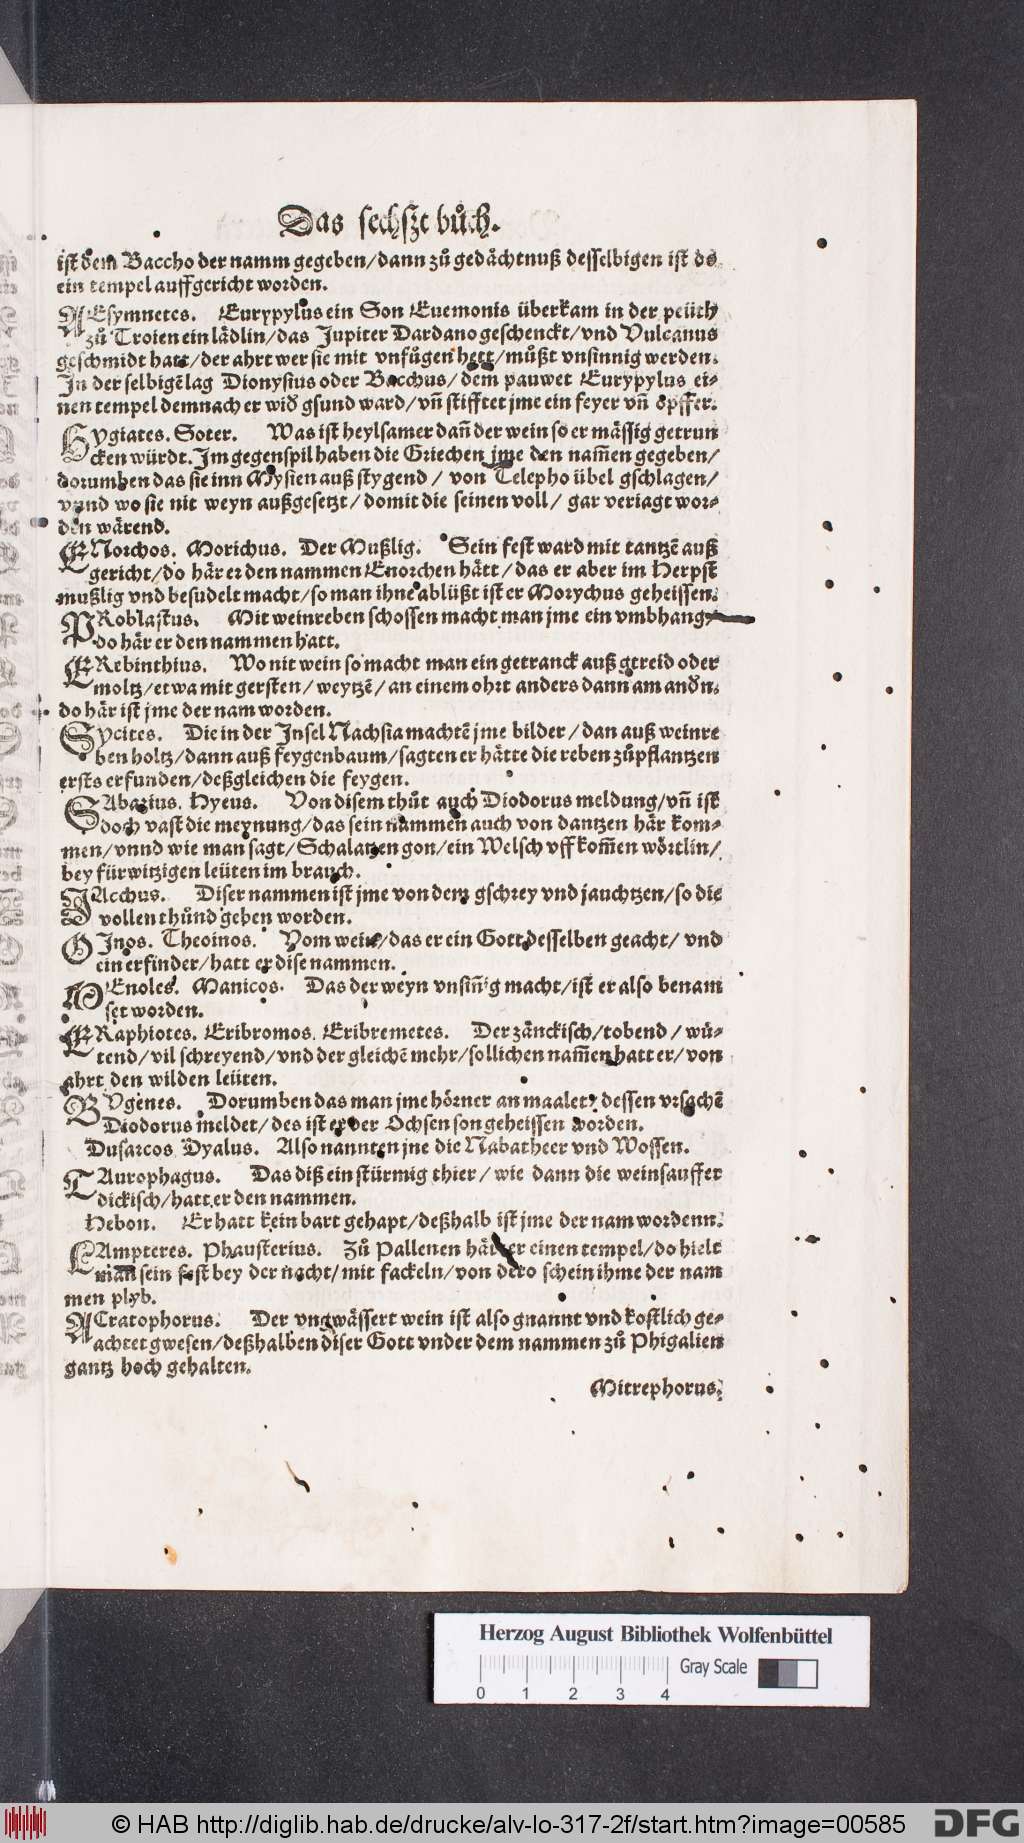 Das sechſzt bůch.
iſt dem Baccho der namm gegeben/dann zů gedåchtnuß deſſelbigen iſt do
ein tempel auffgericht worden.
AEſymnetes. Eurypylus ein Son Euemonis überkam in der peüth
zů Troien ein lådlin/das Jupiter Dardano geſchenckt/vnd Vulcanus
geſchmidt hatt/der ahrt wer ſie mit vnfůgen hett/můßt vnſinnig werden.
In der ſelbigẽ lag Dionyſius oder Bacchus/dem pauwet Eurypylus ei-
nen tempel demnach er wid gſund ward/vñ ſtifftet jme ein feyer vñ opffer.
Hygiates. Soter. Was iſt heylſamer dañ der wein ſo er måſſig getrun
cken würdt. Im gegenſpil haben die Griechen jme den nam̃en gegeben/
dorumben das ſie inn Myſien auß ſtygend/ von Telepho übel gſchlagen/
vnnd wo ſie nit weyn außgeſetzt/domit die ſeinen voll/ gar veriagt wor-
den wårend.
ENorchos. Morichus. Der Mußlig. Sein feſt ward mit tantzẽ auß
gericht/do hår er den nammen Enorchen hått/das er aber im Herpſt
mußlig vnd beſudelt macht/ſo man ihne ablüßt iſt er Morychus geheiſſen.
PRoblaſtus. Mit weinreben ſchoſſen macht man jme ein vmbhang/
do hår er den nammen hatt.
EREbinthius. Wo nit wein ſo macht man ein getranck auß gtreid oder
moltz/etwa mit gerſten/weytzẽ/an einem ohrt anders dann am andn.
do hår iſt jme der nam worden.
Sycites. Die in der Inſel Nachſia machtẽ jme bilder/dan auß weinre
ben holtz/dann auß feygenbaum/ſagten er håtte die reben zůpflantzen
erſts erfunden/deßgleichen die feygen.
SAbazius. Hyeus. Von diſem thůt auch Diodorus meldung/vñ iſt
doch vaſt die meynung/das ſein nammen auch von dantzen hår kom-
men/vnnd wie man ſagt/Schalatzen gon/ein Welſch vff kom̃en wörtlin/
bey fürwitzigen leüten im brauch.
JAcchus. Diſer nammen iſt jme von dem gſchrey vnd jauchtzen/ſo die
vollen thůnd geben worden.
OInos. Theoinos. Vom wein/das er ein Gott deſſelben geacht/ vnd
ein erfinder/hatt er diſe nammen.
MEnoles. Manicos. Das der weyn vnſin̄ig macht/iſt er alſo benam
ſet worden.
ERaphiotes. Eribromos. Eribremetes. Der zånckiſch/tobend/ wü-
tend/vil ſchreyend/vnd der gleichẽ mehr/ſollichen nam̃en hatt er/von
ahrt den wilden leüten.
BVgenes. Dorumben das man jme hörner an maalet/ deſſen vrſachẽ
Diodorus meldet/des iſt er der Ochſen ſon geheiſſen worden.
Duſarcos Dyalus. Alſo nannten jne die Nabatheer vnd Moſſen.
TAurophagus. Das diß ein ſtürmig thier/ wie dann die weinſauffer
dickiſch/hatt er den nammen.
Hebon. Er hatt kein bart gehapt/deßhalb iſt jme der nam wordenn.
LAmpteres. Phauſterius. Zů Pallenen hått er einen tempel/do hielt
man ſein feſt bey der nacht/mit fackeln/von dero ſchein ihme der nam
men plyb.
ACratophorus. Der vngwåſſert wein iſt alſo gnannt vnd koſtlich ge-
achtet gweſen/deßhalben diſer Gott vnder dem nammen zů Phigalien
gantz hoch gehalten.
Mitrephorus.
Herzog August Bibliothek Wolfenbüttel
Gray Scale
0 1 2 3 4
© HAB http://diglib.hab.de/drucke/alv-lo-317-2f/start.htm?image=00585 DFG